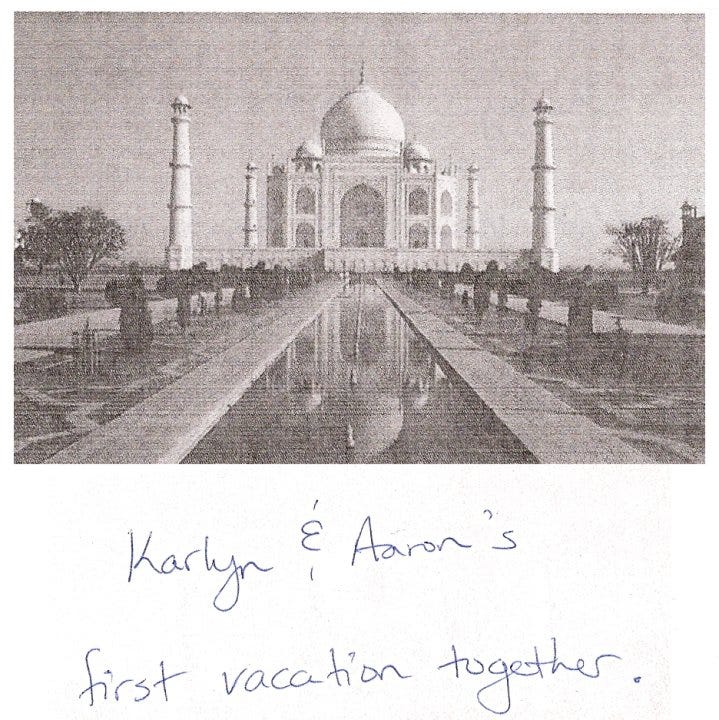 Karlyn & Aaron's
first vacation together.